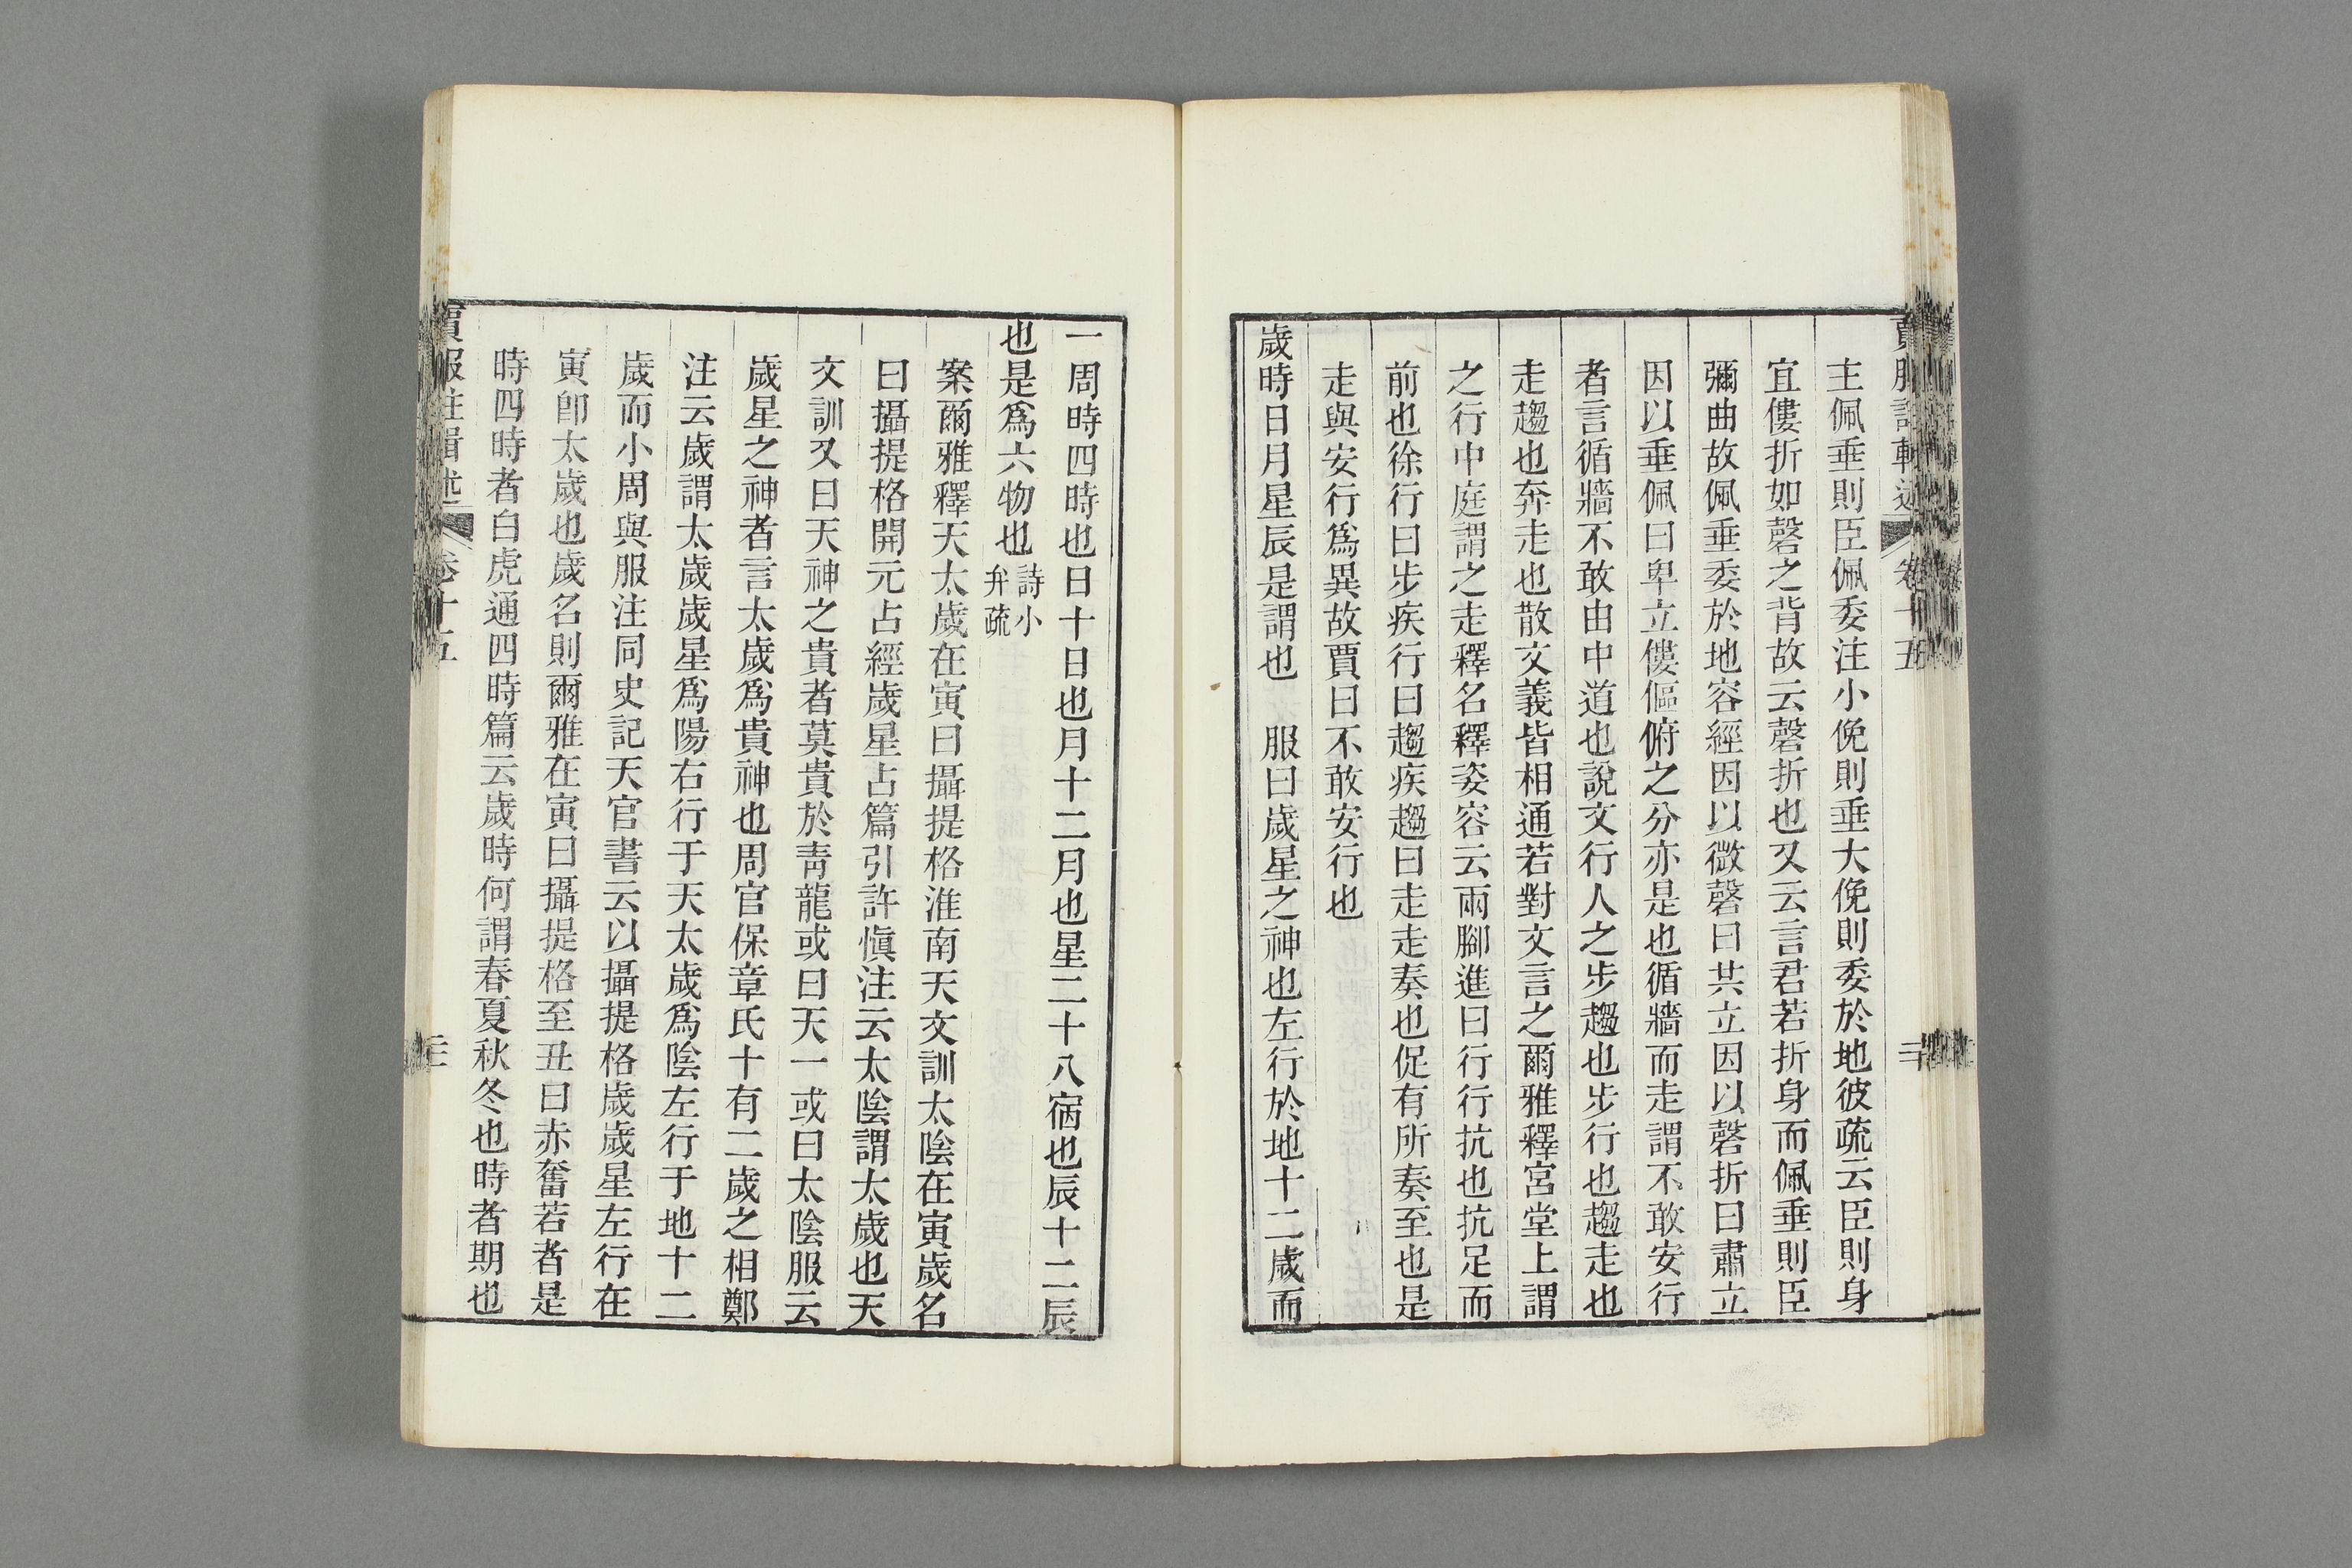 主佩垂則臣佩委注小俛則垂大俛則委於地彼疏云臣則身
宜僂折如磬之背故云磬折也又云言君若折身而佩垂則臣
彌曲故佩垂委於地容經因以微磬曰共立因以磬折曰肅立
因以垂佩曰卑立僂傴俯之分亦是也循牆而走謂不敢安行
者言循牆不敢由中道也說文行人之步趨也步行也趨走也
走趨也奔走也散文義皆相通若對文言之爾雅釋宮堂上謂
之行中庭謂之走釋名釋姿容云兩腳進曰行行抗也抗足而
前也徐行曰步疾行曰趨疾趨曰走走奏也促有所奏至也是
走與安行爲異故賈曰不敢安行也
歲時日月星辰是謂也 服曰歲星之神也左行於地十二歲而
一周時四時也日十日也月十二月也星二十八宿也辰十二辰
也是爲六物也詩小
弁疏
案爾雅釋天太歲在寅曰攝提格淮南天文訓太陰在寅歲名
曰攝提格開元占經歲星占篇引許愼注云太陰謂太歲也天
文訓又曰天神之貴者莫貴於靑龍或曰天一或曰太陰服云
歲星之神者言太歲爲貴神也周官保章氏十有二歲之相鄭
注云歲謂太歲歲星爲陽右行于天太歲爲陰左行于地十二
歲而小周與服注同史記天官書云以攝提格歲歲星左行在
寅卽太歲也歲名則爾雅在寅曰攝提格至丑曰赤奮若者是
時四時者白虎通四時篇云歲時何謂春夏秋冬也時者期也
賈服注輯述 卷十五